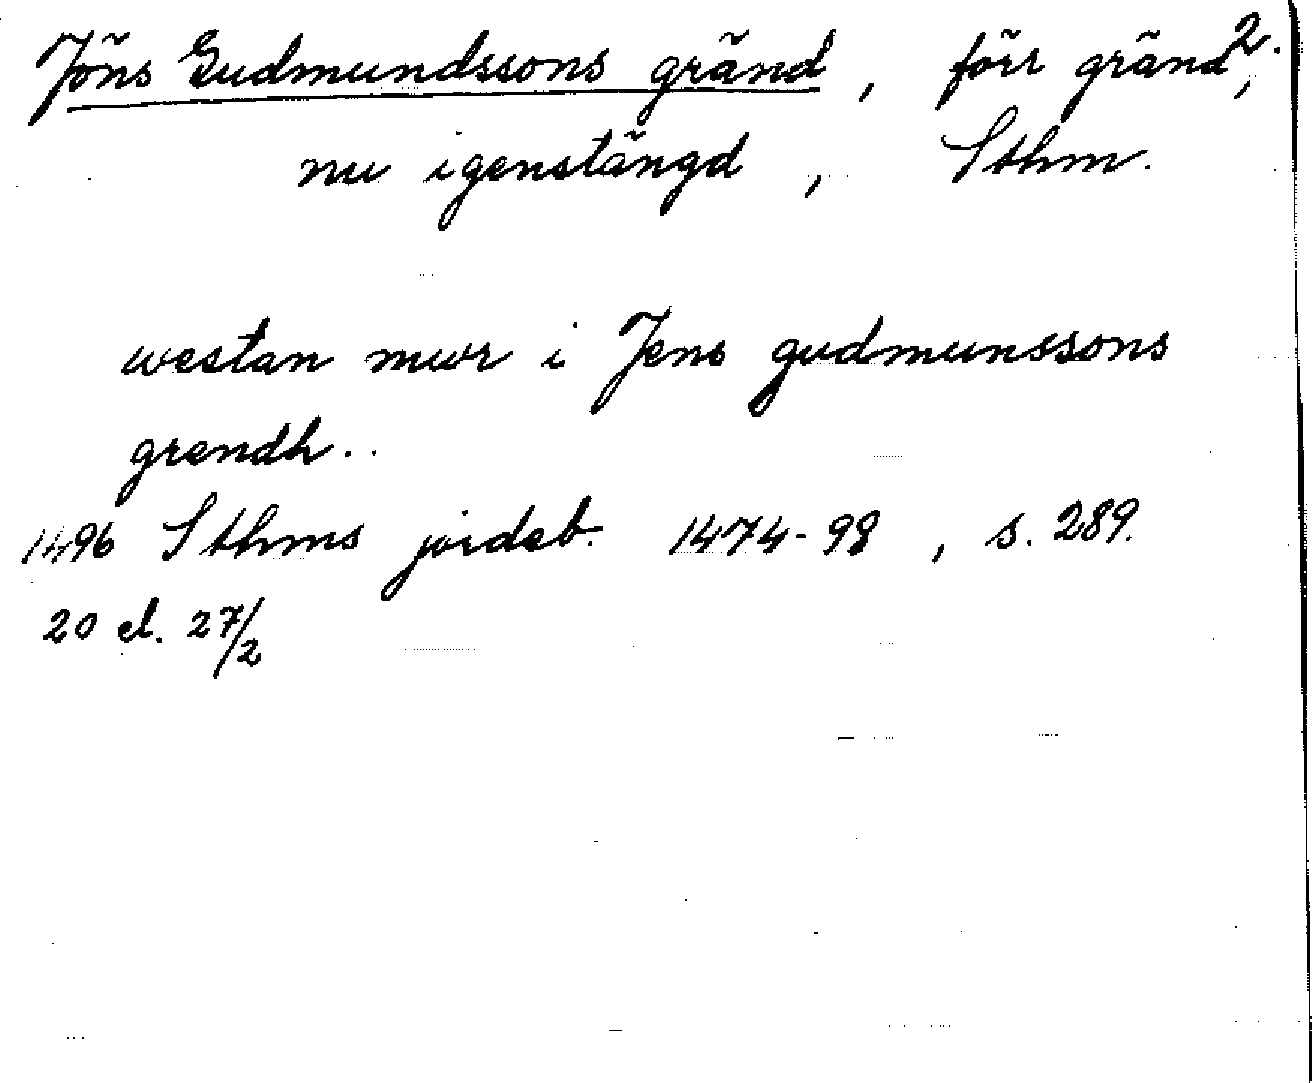 Jöns Gudmundssons gränd, förr gränd, 2.
nu igenstängd, Sthm.
westan mwr i Jens gudmunssons
grendh..
1496 Sthms jordeb. 1474-98, s. 289.
20 el. 27/2